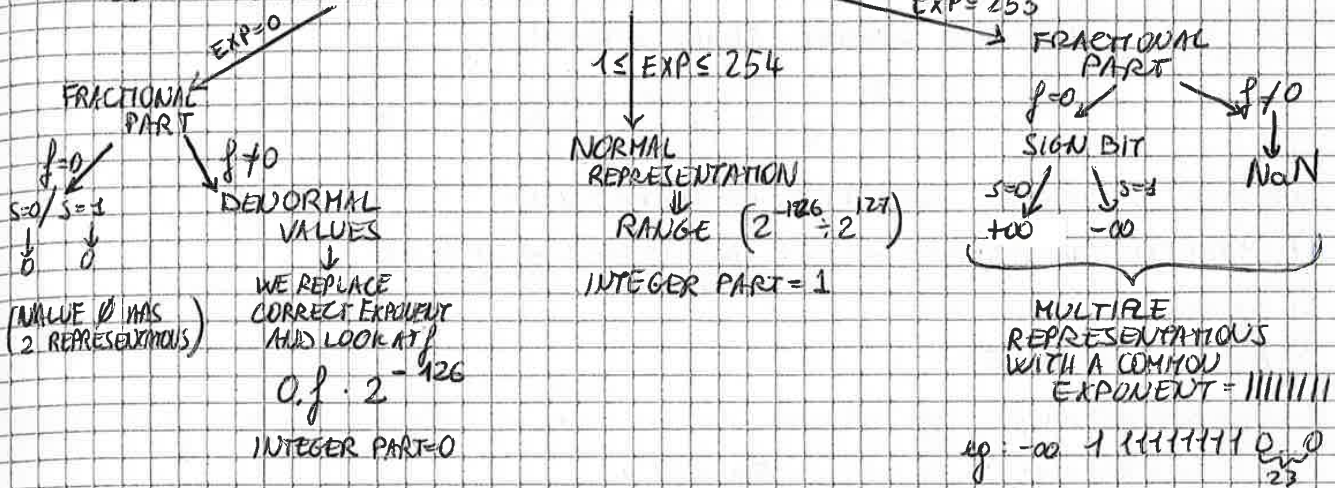 EXP=0
FRACTIONAL
PART
f=0
f≠0
s=0/s=1
0 0
(VALUE Ø HAS
2 REPRESENTATIONS)
DENORMAL
VALUES
WE REPLACE
CORRECT EXPONENT
AND LOOK AT f
0.f · 2^-126
INTEGER PART=0
1≤ EXP ≤ 254
NORMAL
REPRESENTATION
RANGE (2^-126 ÷ 2^127)
INTEGER PART = 1
EXP= 255
FRACTIONAL
PART
f=0
f≠0
SIGN BIT
NaN
s=0/ s=1
+∞ -∞
MULTIPLE
REPRESENTATIONS
WITH A COMMON
EXPONENT = 11111111
eg: -∞ 1 11111111 0..0
23